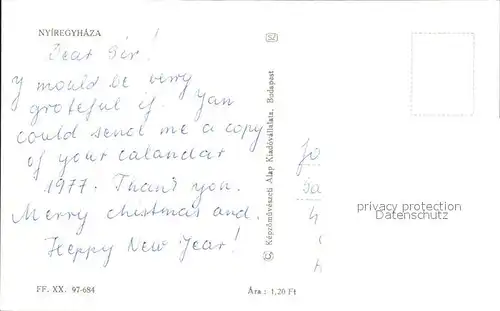 NYÍREGYHÁZA
Dear Sir!
Y mould be very
grateful if Yan
could send me a copy
of your calandar
1977. Thank you.
Merry christmas and
Heppy New Year!
FF. XX. 97-684
Képzőművészeti Alap Kiadóvállalata, Budapest
Ára: 1,20 Ft
privacy protection
Datenschutz